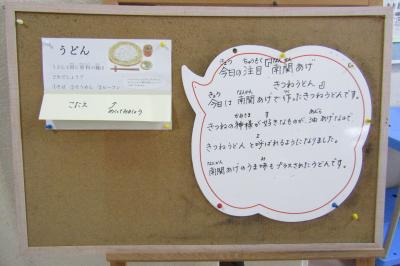 うどん
うどんと同じ原料の麺は
どれでしょう？
①そば ②そうめん ③ビーフン
こたえ
めくってみましょう
今日の注目『南関あげ
きつねうどん』
今日は南関あげで作ったきつねうどんです。
きつねの神様が好きなものが、油あげなので
きつねうどんと呼ばれるようになりました。
南関あげのうま味もプラスされたうどんです。